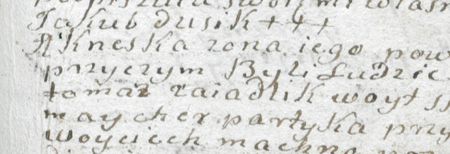 swoymi własn
Jakub dusik +++
A Kneska zona iego pow
przyczym Byli Ludzie
tomaz zaiadlik woyt ss
maycher partyka przy
woyciech machna